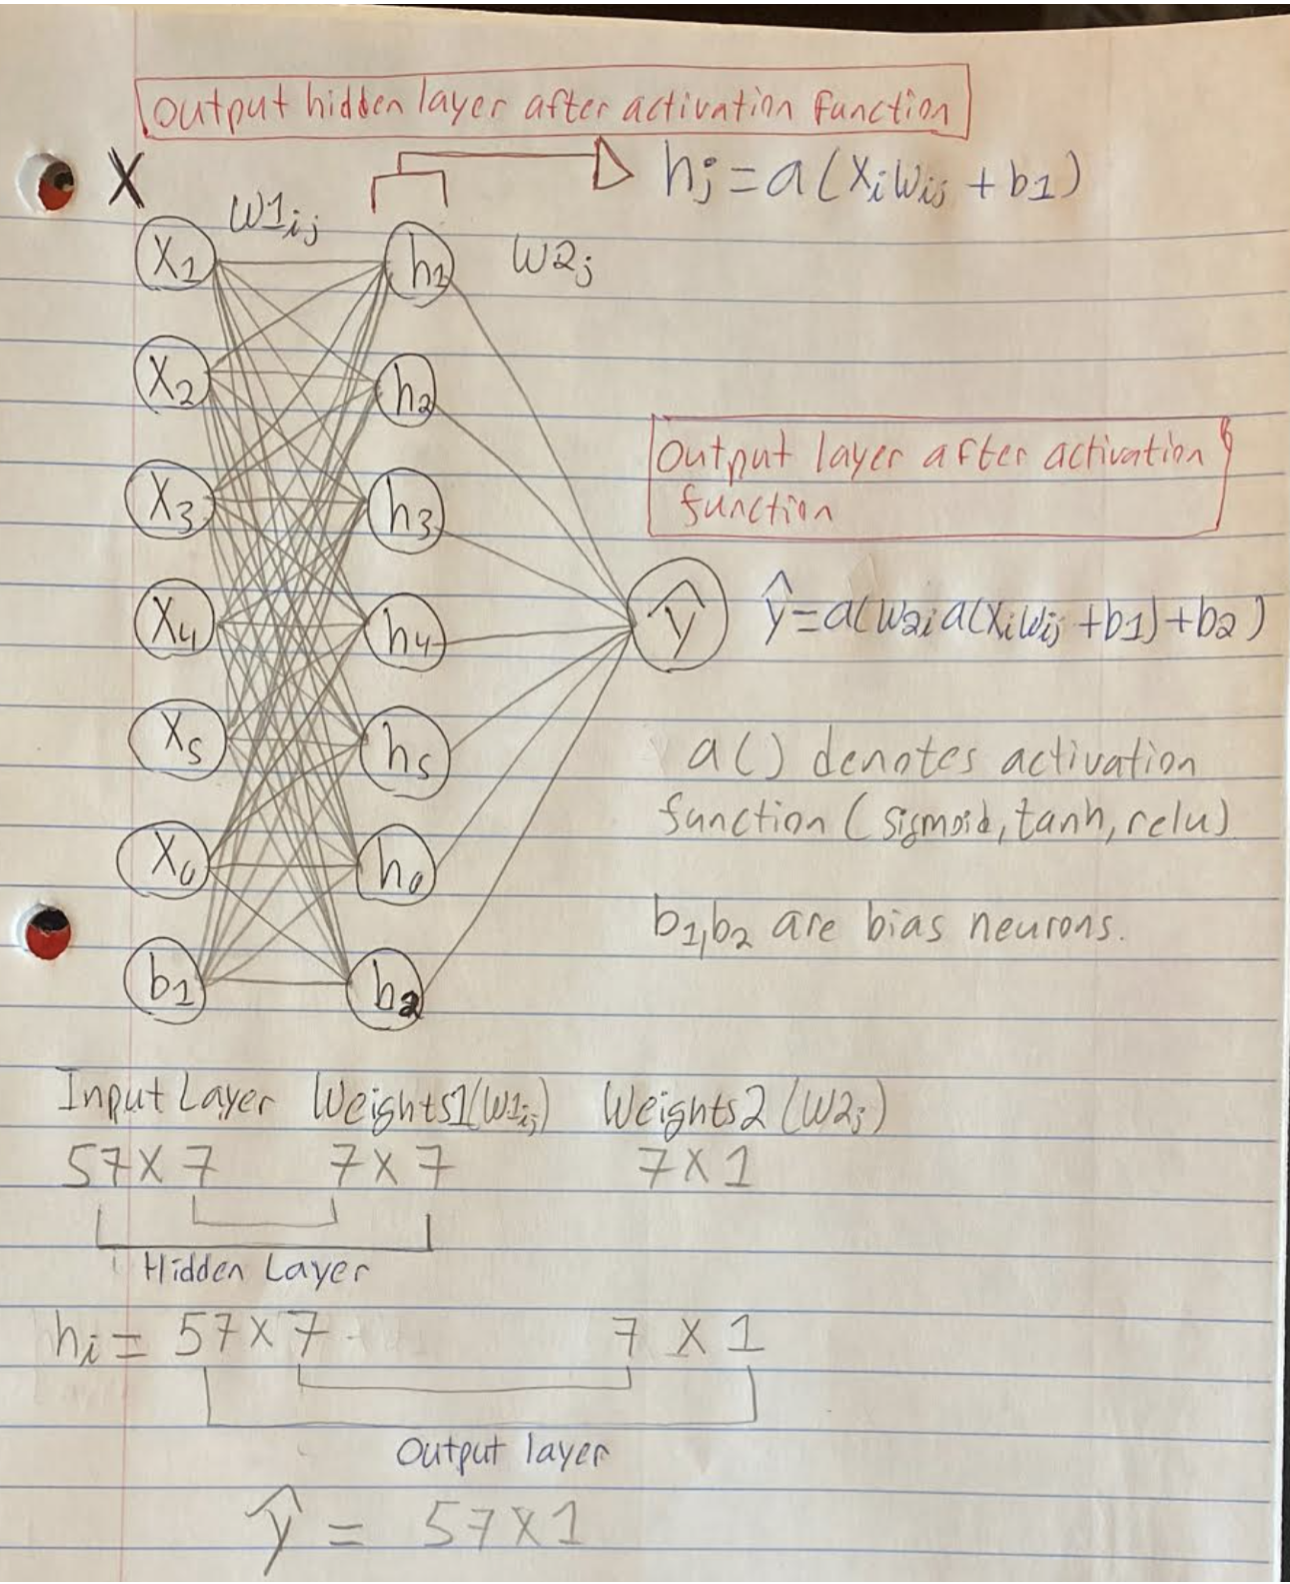 Output hidden layer after activation function
X
hj = a(XiWij + b1)
W1ij
W2j
X1
h1
X2
h2
X3
h3
X4
h4
X5
h5
X6
h6
b1
b2
Output layer after activation
function
ŷ
ŷ=a(W2i a(XiWij +b1)+b2)
a() denotes activation
function (sigmoid, tanh, relu)
b1,b2 are bias neurons.
Input Layer Weights1(W1ij) Weights2 (W2j)
57X7 7X7 7X1
Hidden Layer
hi = 57X7 7 X 1
Output layer
ŷ = 57X1